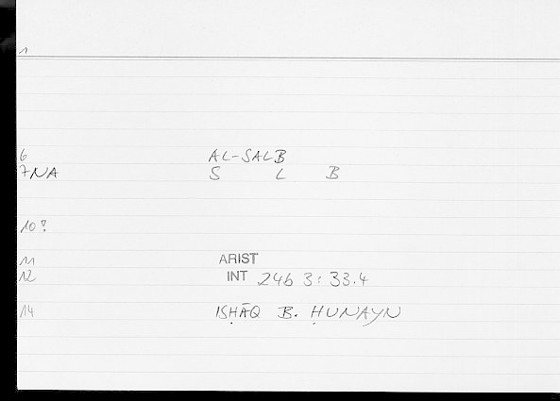 1
6 AL-SALB
7 NA S L B
10?
11 ARIST
12 INT 24b 3:33.4
14 ISḤĀQ B. ḤUNAYN